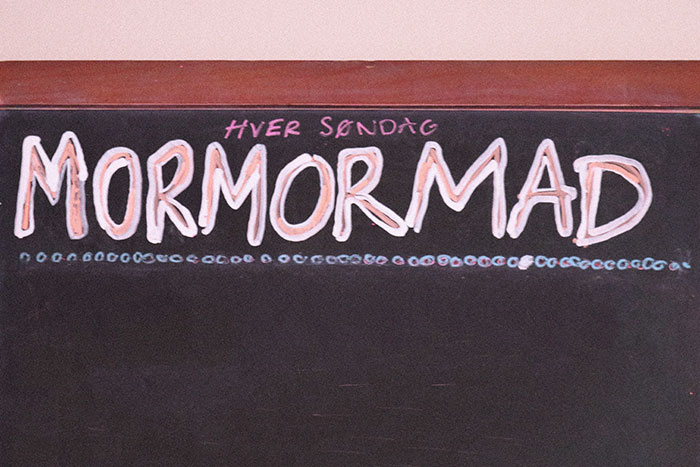 HVER SØNDAG
MORMORMAD